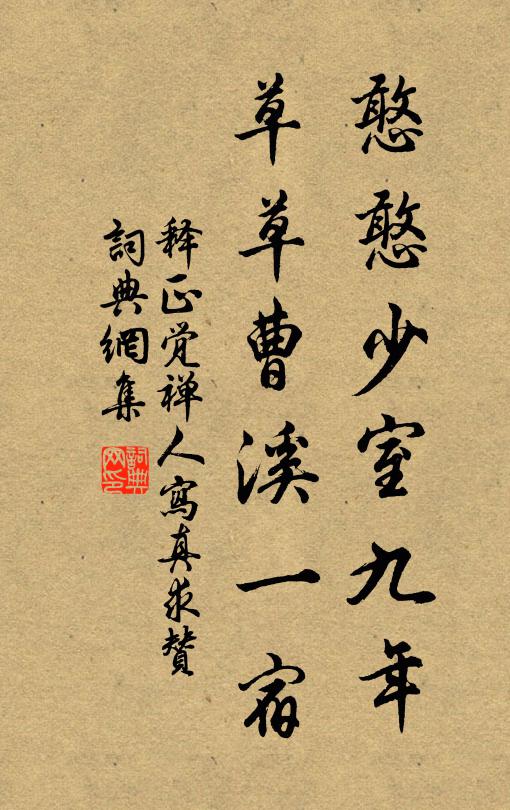 憨憨少室九年
草草曹溪一宿
释正觉禅人寫真求贊
詞典網集
詞典网印